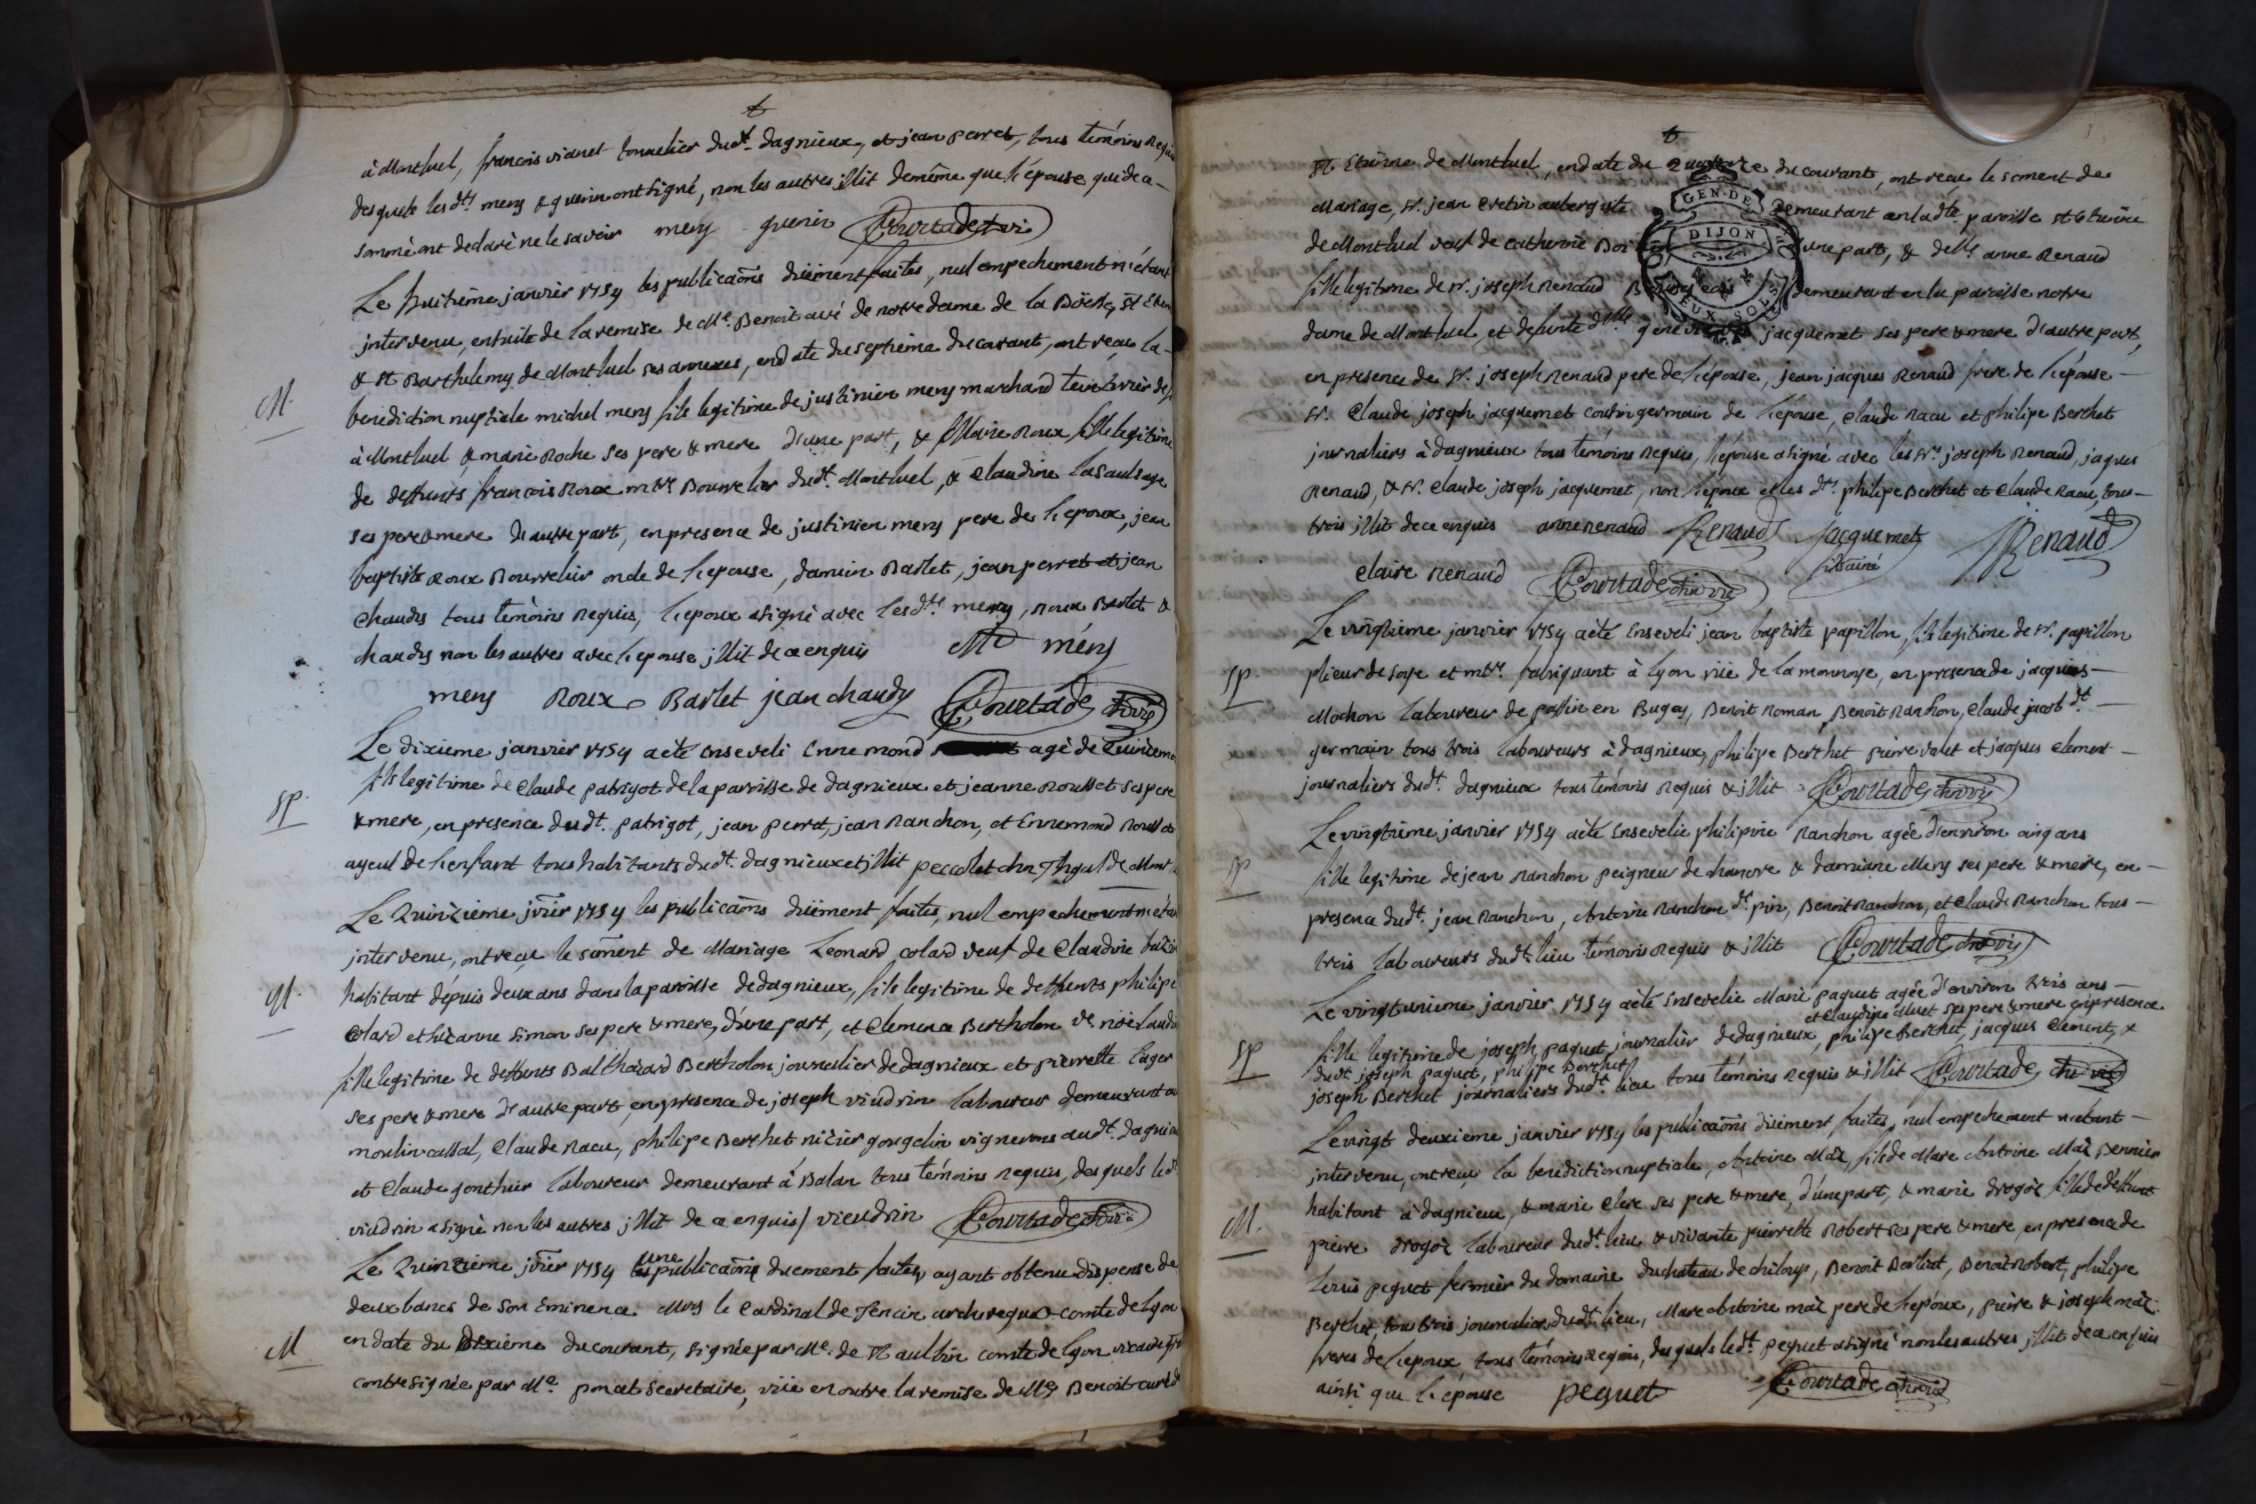 à Montluel, francois vianet tonnelier dudt. dagnieux, et jean perret, tous témoins requis
desquels les dts. mery & guerin ont signé, non les autres illit demême que l'épouse qui de ce
sommé ont declaré ne le savoir mery guerin Courtade
Le huitième janvier 1754 les publicaons düement faites, nul empechement n'étant
intervenu, ensuite de la remise de Me. Benoit curé de notre dame de la Boisse, St Etien
& st Barthelemy de Montluel ses annexes, en date du septieme du courant, ont reçu la
M.
benediction nuptiale michel mery fils legitime de justinien mery marchand
à Montluel & marie Roche ses pere & mere d'une part, & Marie Roux fille legitime
de deffunts francois Roux mtre Bourrelier dudt. Montluel, & Claudine Lasausage
ses pere & mere d'autre part, en presence de justinien mery pere de l'epoux, jean
baptiste Roux Bourrelier oncle de l'epouse, damien Barlet, jean perret et jean
Chaudy tous témoins requis, l'epoux a signé avec les dts mery, Roux Barlet &
chaudy non les autres avec l'epouse illit de ce enquis Ml mery
mery Roux Barlet jean chaudy Courtade
Le dixieme janvier 1754 a été enseveli Ennemond agé de
SP.
fils legitime de Claude patrigot de la paroisse de dagnieux et jeanne Rousset ses pere
& mere, en presence dudt. patrigot, jean perret, jean Ranchon, et Ennemond Rousset
ayeul de l'enfant tous habitants dudt. dagnieux et illit
Le Quinzieme jvier 1754 les publicaons düement faites, nul empechement n'étant
intervenu, ont reçu le sacrement de Mariage Leonard Colard veuf de Claudine
M.
habitant dépuis deux ans dans la paroisse de dagnieux, fils legitime de deffunts philipe
Colard et suzanne simon ses pere & mere, d'une part, et Clemence Bertholon ve.
fille legitime de deffunts Balthazard Bertholon journalier de dagnieux et pierrette Euger
ses pere & mere d'autre part, en presence de joseph vieudrin laboureur demeurant au
moulin cassal, Claude Racu, philipe Berthet nizier gongelin vignerons audt. dagnieux
et Claude gonthier laboureur demeurant à Balan tous témoins requis, desquels ledt
vieudrin a signé non les autres illit de ce enquis / vieudrin Courtade
Le Quinzieme jvier 1754 une publicaon duement faite, ayant obtenu dispense de
deux bancs de Son Eminence Mgr le Cardinal de Tencin archeveque comte de Lyon
M
en date du dixième du courant, signée par Me. de St aulbin comte de Lyon vicaire gnl
contresignée par Me. poncet secretaire, vüe en outre la remise de Me. Benoit curé de
St Etienne de Montluel, en date du Quatorze du courant, ont reçu le sacrement de
Mariage, Sr. jean Cretin aubergiste demeurant en ladte. paroisse St Etienne
de Montluel veuf de catherine d'une part, & delle. anne Renaud
fille legitime de Sr. joseph Renaud Bourgeois demeurant en la paroisse notre
dame de Montluel, et defunte dlle. genevieve jacquemet ses pere & mere d'autre part,
en presence de Sr. joseph Renaud pere de l'epouse, jean jacques Renaud frere de l'épouse
Sr. Claude joseph jacquemet cousin germain de l'epouse, Claude Racu et philipe Berthet
journaliers à dagnieux tous témoins requis, l'epouse a signé avec les srs. joseph Renaud, jaques
Renaud, & Sr. Claude joseph jacquemet, non l'epoux et les dts. philipe Berthet et Claude Racu, tous
trois illit de ce enquis anne renaud Renaud Jacquemet JRenaud
Claire Renaud Courtade
Le vingtieme janvier 1754 a été enseveli jean baptiste papillon, fils legitime de sr. papillon
SP.
plieur de soye et mtre. fabriquant à Lyon rüe de la monnoye, en presence de jacques
Mochon laboureur de possin en Bugey, Benoit Roman, Benoit Ranchon, Claude jacob dt.
germain tous trois laboureurs à dagnieux, philipe Berthet pierre valet et jacques clement
journaliers dudt. dagnieux tous témoins requis & illit Courtade
Le vingtieme janvier 1754 a été ensevelie philipine Ranchon agée d'environ cinq ans
SP
fille legitime de jean Ranchon peigneur de chanvre & damiane Mery ses pere & mere, en
presence dudt. jean Ranchon, Antoine Ranchon dt. pin, Benoit Ranchon, et Claude Ranchon tous
trois laboureurs dudt. lieu témoins requis & illit Courtade
Le vingt unieme janvier 1754 a été ensevelie Marie paquet agée d'environ trois ans
et Claudine Muet ses pere & mere en presence
SP
fille legitime de joseph paquet journalier de dagnieux, philipe Berthet, jacques Clement, &
dudt joseph paquet, philipe Berthet
joseph Berthet journaliers dudt. lieu tous témoins requis & illit Courtade
Le vingt deuxieme janvier 1754 les publicaons düement faites, nul empechement n'étant
intervenu, ont reçu la benediction nuptiale, Antoine Maè, fils de Marc Antoine Maè
M.
habitant à dagnieux, & marie Clere ses pere & mere, d'une part, & marie drogoz fille de défunt
pierre drogoz laboureur dudt. lieu & vivante pierrette Robert ses pere & mere, en presence de
Louis pequet fermier du domaine du chateau de chiloup, Benoit Barlet, Benoit Robert, philipe
Berthet, tous trois journaliers dudt. lieu, Marc Antoine maè pere de l'epoux, pierre & joseph maè
freres de l'epoux tous témoins requis, desquels ledt. pequet a signé non les autres illit de ce enquis
ainsi que l'épouse pequet Courtade
GEN. DE
DIJON
DEUX SOLS